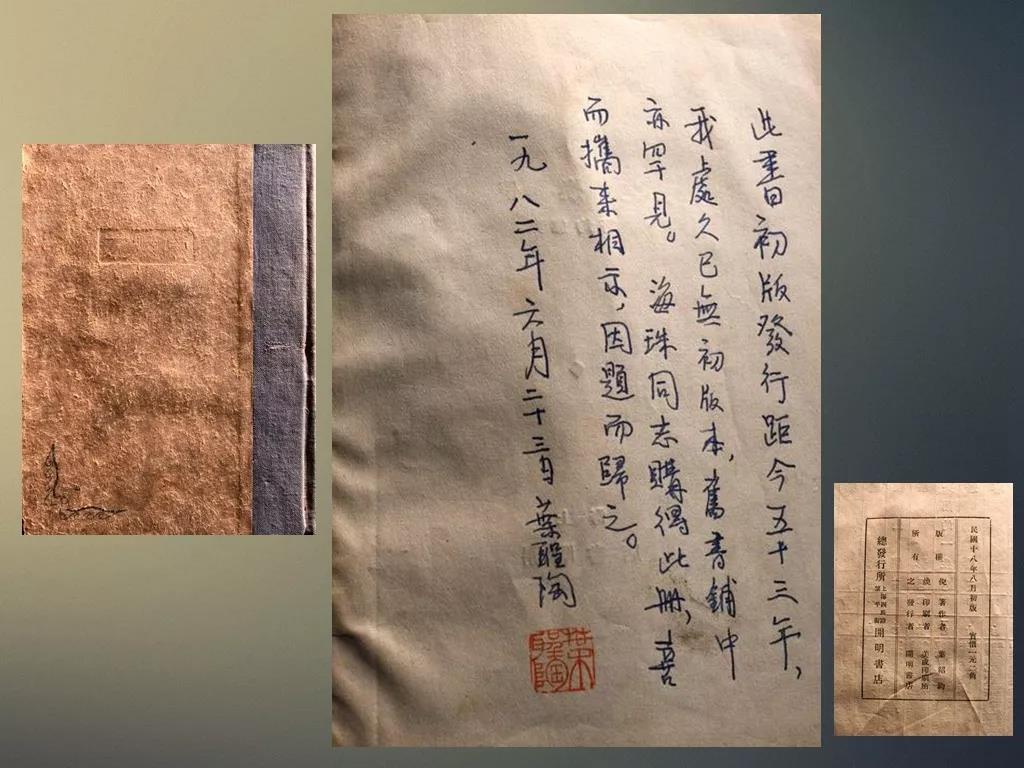 此書初版發行距今五十三年，
我處久已無初版本，舊書鋪中
亦罕見。海珠同志購得此册，喜
而攜來相示，因題而歸之。
一九八二年六月二十三日 葉聖陶
葉聖陶
民國十八年八月初版 實價一元二角
版權 倪 著作者 葉紹鈞
煥 印刷者 美成印刷所
所有 之 發行者 開明書店
總發行所 開明書店